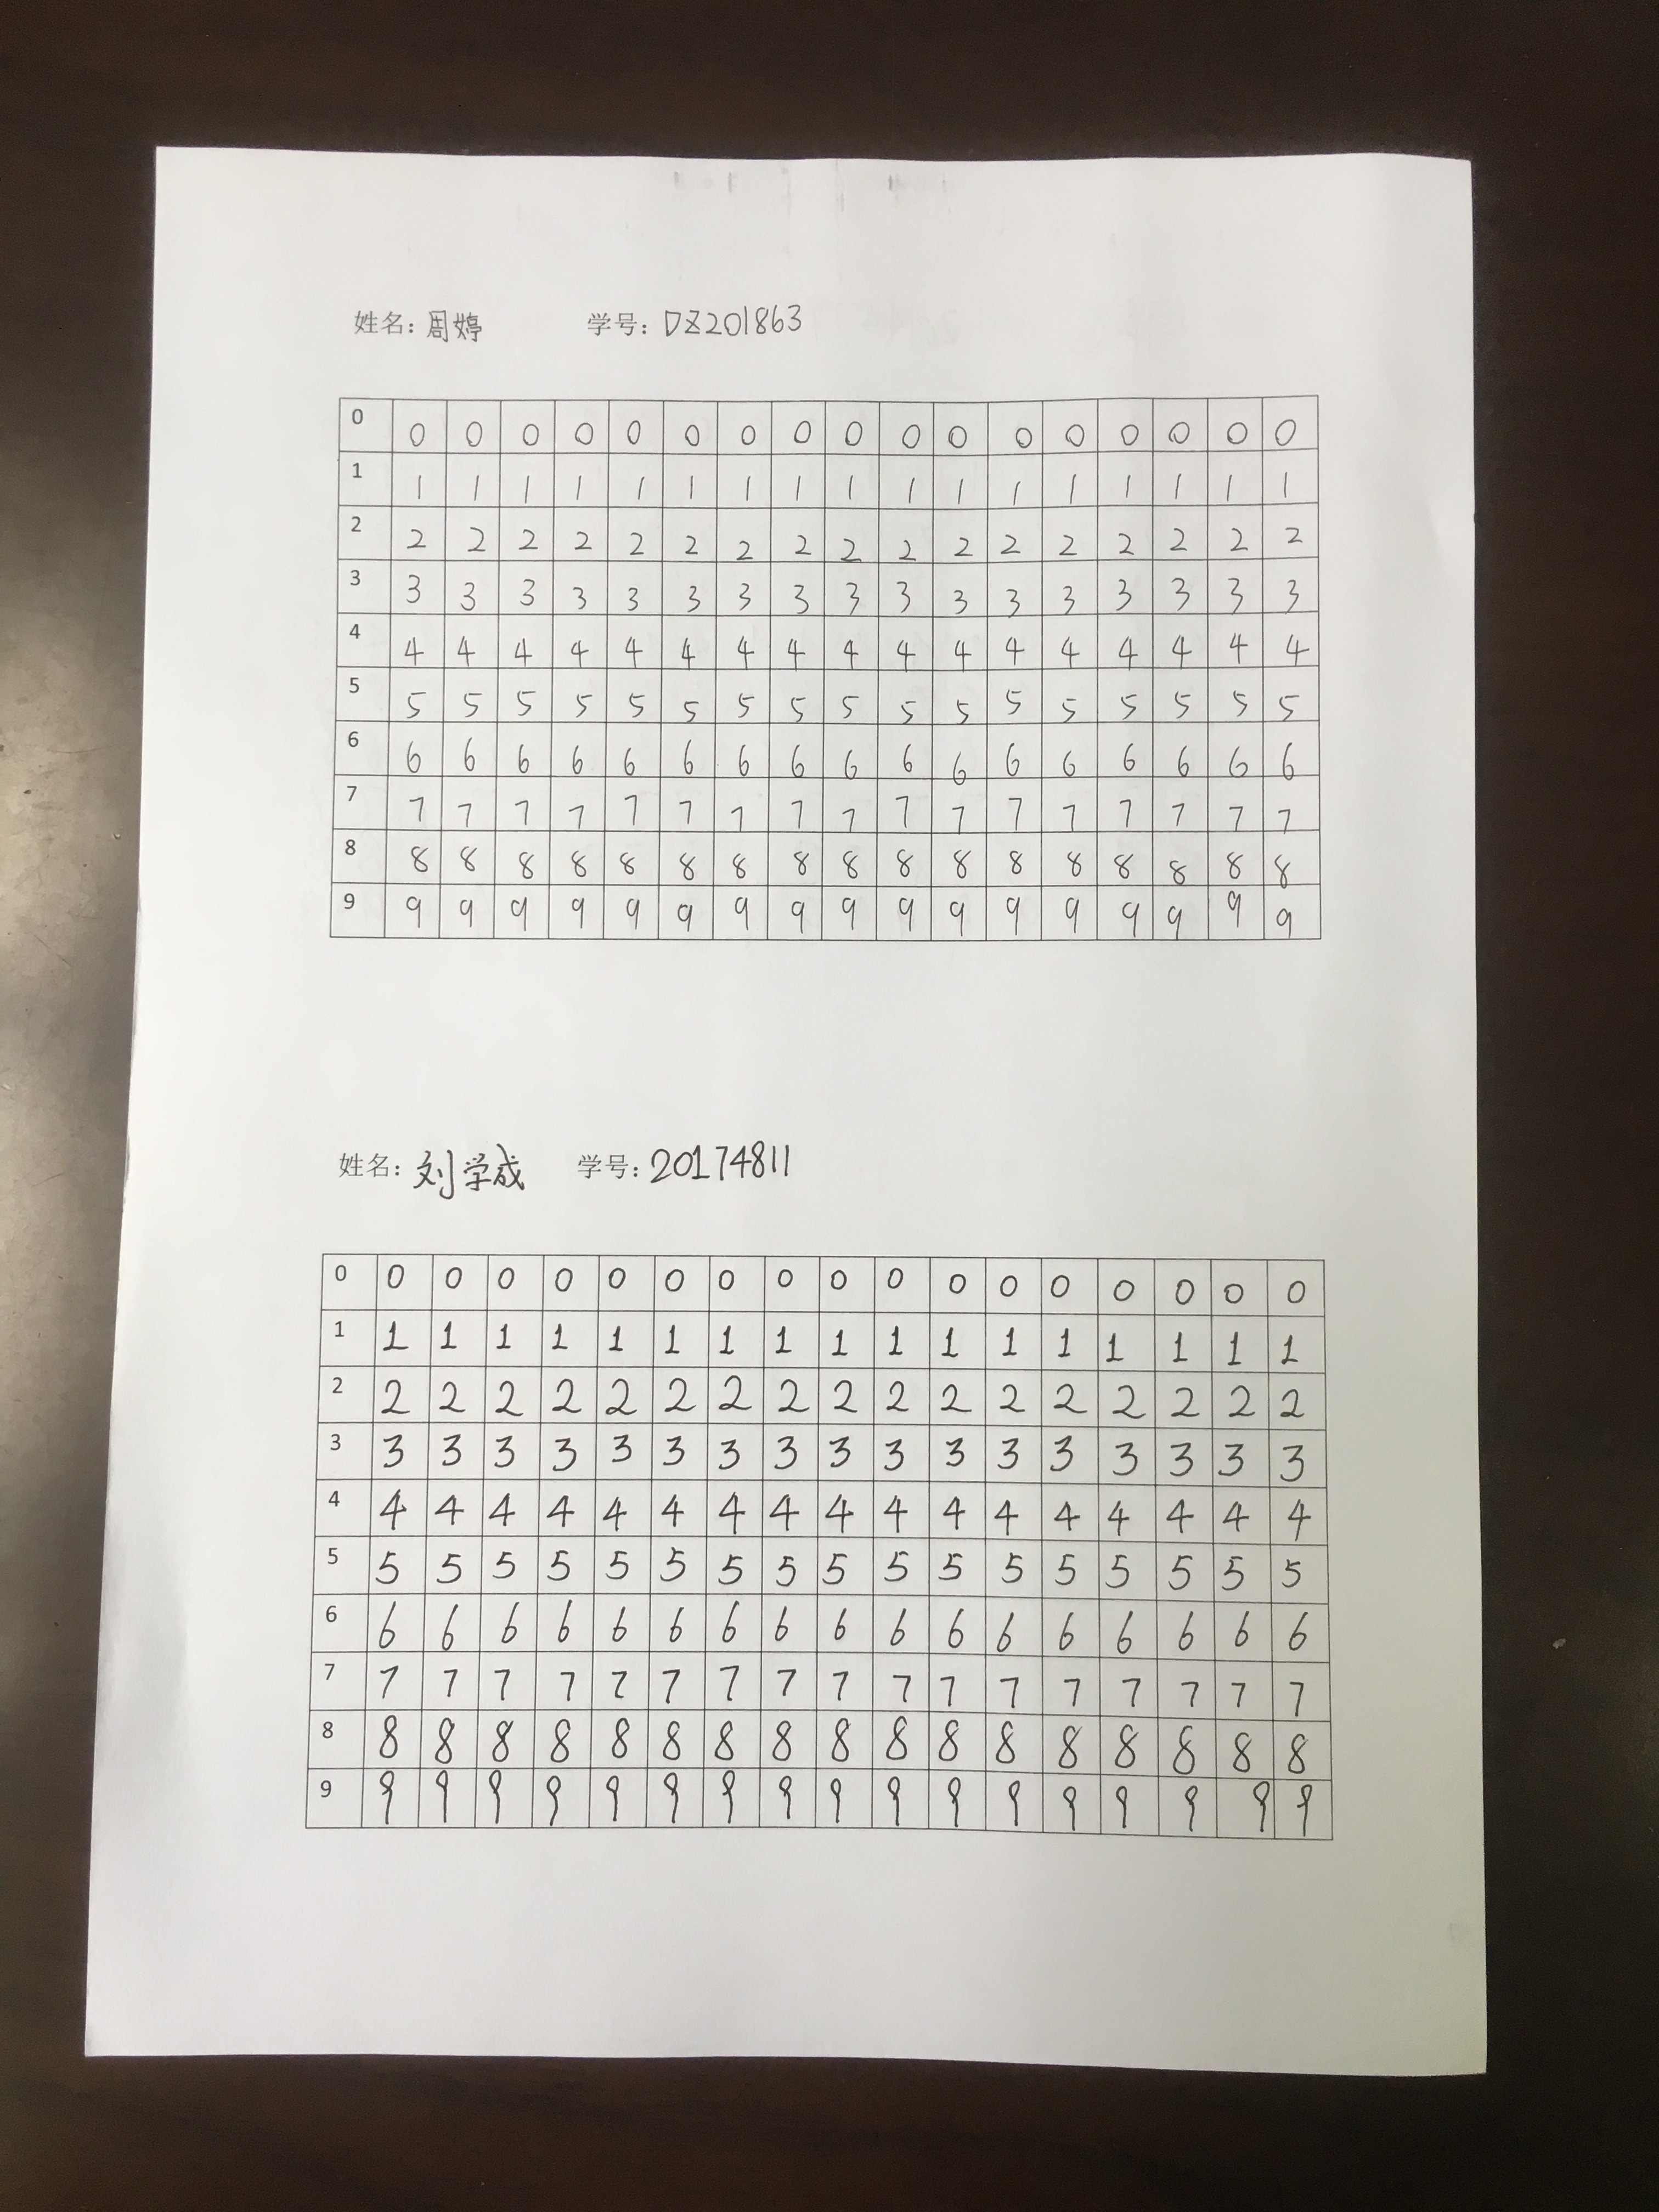 姓名：周婷 学号：DZ201863
0 0 0 0 0 0 0 0 0 0 0 0 0 0 0 0 0 0
1 1 1 1 1 1 1 1 1 1 1 1 1 1 1 1 1 1
2 2 2 2 2 2 2 2 2 2 2 2 2 2 2 2 2 2
3 3 3 3 3 3 3 3 3 3 3 3 3 3 3 3 3 3
4 4 4 4 4 4 4 4 4 4 4 4 4 4 4 4 4 4
5 5 5 5 5 5 5 5 5 5 5 5 5 5 5 5 5 5
6 6 6 6 6 6 6 6 6 6 6 6 6 6 6 6 6 6
7 7 7 7 7 7 7 7 7 7 7 7 7 7 7 7 7 7
8 8 8 8 8 8 8 8 8 8 8 8 8 8 8 8 8 8
9 9 9 9 9 9 9 9 9 9 9 9 9 9 9 9 9 9
姓名：刘学成 学号：20174811
0 0 0 0 0 0 0 0 0 0 0 0 0 0 0 0 0 0
1 1 1 1 1 1 1 1 1 1 1 1 1 1 1 1 1 1
2 2 2 2 2 2 2 2 2 2 2 2 2 2 2 2 2 2
3 3 3 3 3 3 3 3 3 3 3 3 3 3 3 3 3 3
4 4 4 4 4 4 4 4 4 4 4 4 4 4 4 4 4 4
5 5 5 5 5 5 5 5 5 5 5 5 5 5 5 5 5 5
6 6 6 6 6 6 6 6 6 6 6 6 6 6 6 6 6 6
7 7 7 7 7 7 7 7 7 7 7 7 7 7 7 7 7 7
8 8 8 8 8 8 8 8 8 8 8 8 8 8 8 8 8 8
9 9 9 9 9 9 9 9 9 9 9 9 9 9 9 9 9 9